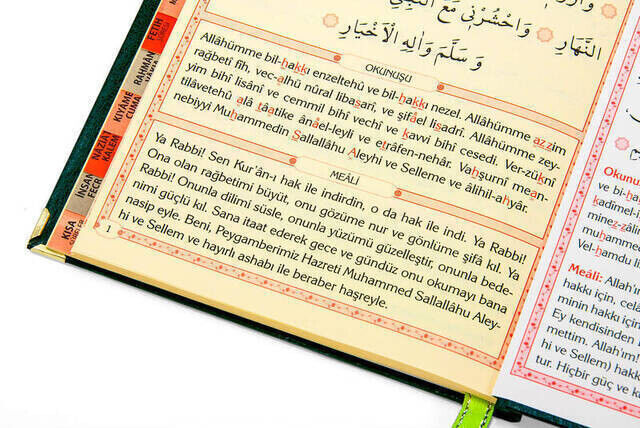 النَّهَارِ ۞ وَاحْشُرْنِي مَعَ النَّبِيِّ
وَسَلَّمَ وَاٰلِهِ الْاَخْيَارِ
OKUNUŞU
Allâhümme bil-hakkı enzeltehû ve bil-hakkı nezel. Allâhümme azzim
rağbetî fîh, vec-alhü nûral libasarî, ve şifâel lisadrî. Allâhümme zey-
yim bihî lisânî ve cemmil bihî vechî ve kavvi bihî cesedî. Ver-zuknî
tilâvetehû alâ tâatike ânâel-leyli ve etrâfen-nehâr. Vahşurnî mean-
nebiyyi Muhammedin Sallallâhu Aleyhi ve Selleme ve âlihil-ahyâr.
MEÂLİ
Ya Rabbi! Sen Kur'ân-ı hak ile indirdin, o da hak ile indi. Ya Rabbi!
Ona olan rağbetimi büyüt, onu gözüme nur ve gönlüme şifâ kıl. Ya
Rabbi! Onunla dilimi süsle, onunla yüzümü güzelleştir, onunla bede-
nimi güçlü kıl. Sana itaat ederek gece ve gündüz onu okumayı bana
nasip eyle. Beni, Peygamberimiz Hazreti Muhammed Sallallâhu Aley-
hi ve Sellem ve hayırlı ashabı ile beraber haşreyle.
1
YASİN
FETİH
RAHMAN
KIYAME
CUMA
NAZİAT
KALEM
İNSAN
FECR
KISA
Okunu
ve bi-ha
kadîmel-i
minez-zâlim
Vel-hamdu l
Meâli: Allah'ı
hakkı için, cel
minin hakkı iç
Ey kendisinden
mettim. Allah'ım!
hi ve Sellem) hakk
tur. Hiçbir güç ve k